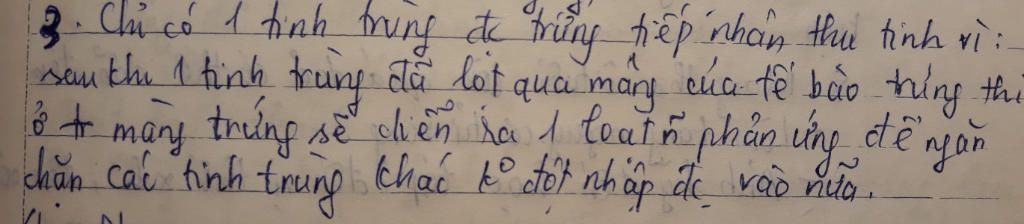 3. Chỉ có 1 tinh trùng đc trứng tiếp nhận thụ tinh vì:
sau khi 1 tinh trùng đã lọt qua màng của tế bào trứng thì
ở tr màng trứng sẽ diễn ra 1 loạt ~ phản ứng để ngăn
chặn các tinh trùng khác ko đột nhập đc vào nữa.